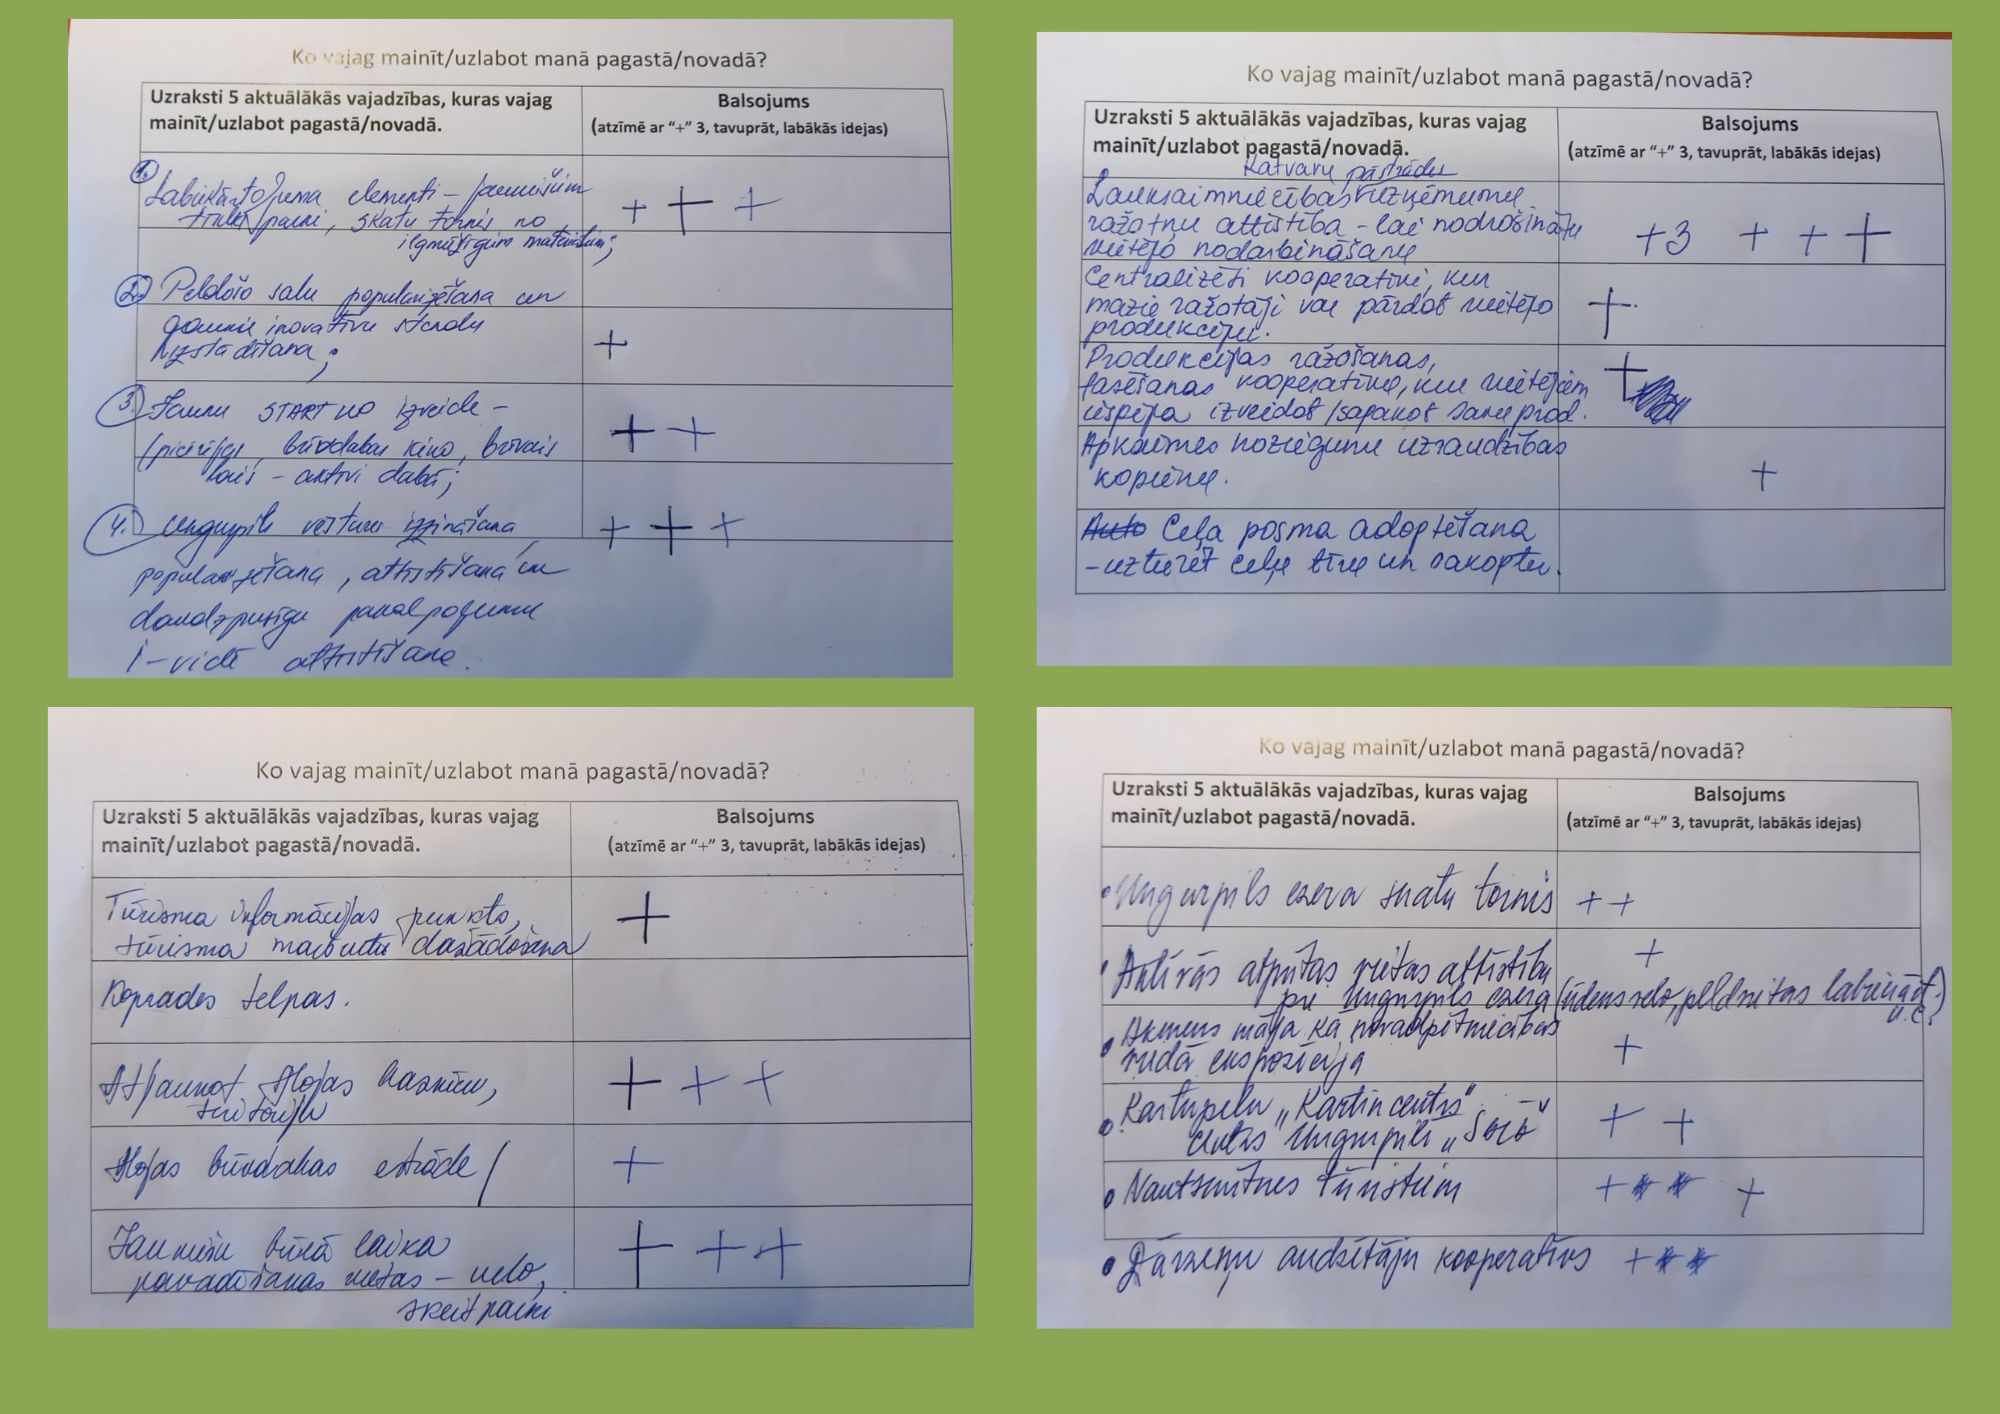 Ko vajag mainīt/uzlabot manā pagastā/novadā?
Uzraksti 5 aktuālākās vajadzības, kuras vajag
mainīt/uzlabot pagastā/novadā.
Balsojums
(atzīmē ar “+” 3, tavuprāt, labākās idejas)
1. Labiekārtojuma elementi – jauniešiem
parki, skatu tornis no
ilgmūžīgiem materiāliem;
+ + +
2. Peldošo salu popularizēšana un
jaunu inovatīvu stendu
uzstādīšana;
+
3. Jaunu START UP izveide –
(picērijas, brīvdabas kino, brīvais
laiks – aktīvi dabā;
+ +
4. Ungurpils vēstures izzināšana,
popularizēšana, attīstīšana un
daudzpusīgu pakalpojumu
i-vidē attīstīšana.
+ + +
Ko vajag mainīt/uzlabot manā pagastā/novadā?
Uzraksti 5 aktuālākās vajadzības, kuras vajag
mainīt/uzlabot pagastā/novadā.
Balsojums
(atzīmē ar “+” 3, tavuprāt, labākās idejas)
Katvaru pārstrādes
Lauksaimniecības uzņēmumu
ražotņu attīstība – lai nodrošinātu
vietējo nodarbināšanu
+3 + + +
Centralizēti kooperatīvi, kur
mazie ražotāji var pārdot vietējo
produkciju.
+
Produkcijas ražošanas,
fasēšanas kooperatīvs, kur vietējiem
iespēja izveidot/sapakot savu prod.
+
Apkaimes noziegumu uzraudzības
kopienu.
+
Auto Ceļa posma adoptēšana
– uzturēt ceļu tīru un sakoptu.
Ko vajag mainīt/uzlabot manā pagastā/novadā?
Uzraksti 5 aktuālākās vajadzības, kuras vajag
mainīt/uzlabot pagastā/novadā.
Balsojums
(atzīmē ar “+” 3, tavuprāt, labākās idejas)
Tūrisma informācijas punkts,
tūrisma maršrutu dažādošana
+
Koprades telpas.
Atjaunot Alojas baznīcu,
teritoriju
+ + +
Alojas brīvdabas estrāde/
+
Jauniešu brīvā laika
pavadīšanas vietas – velo,
skeitparki
+ + +
Ko vajag mainīt/uzlabot manā pagastā/novadā?
Uzraksti 5 aktuālākās vajadzības, kuras vajag
mainīt/uzlabot pagastā/novadā.
Balsojums
(atzīmē ar “+” 3, tavuprāt, labākās idejas)
• Ungurpils ezera skatu tornis
+ +
• Aktīvās atpūtas vietas attīstība
+
pie Ungurpils ezera (ūdens velo, peldvietas labiekārt.
u.c.)
• Akmens māja kā novadpētniecības
veida ekspozīcija
+
• Kartupeļu „Kartin centrs”
centrs Ungurpilī
+ +
• Naktsmītnes tūristiem
+ +
• Dārzeņu audzētāju kooperatīvs
+